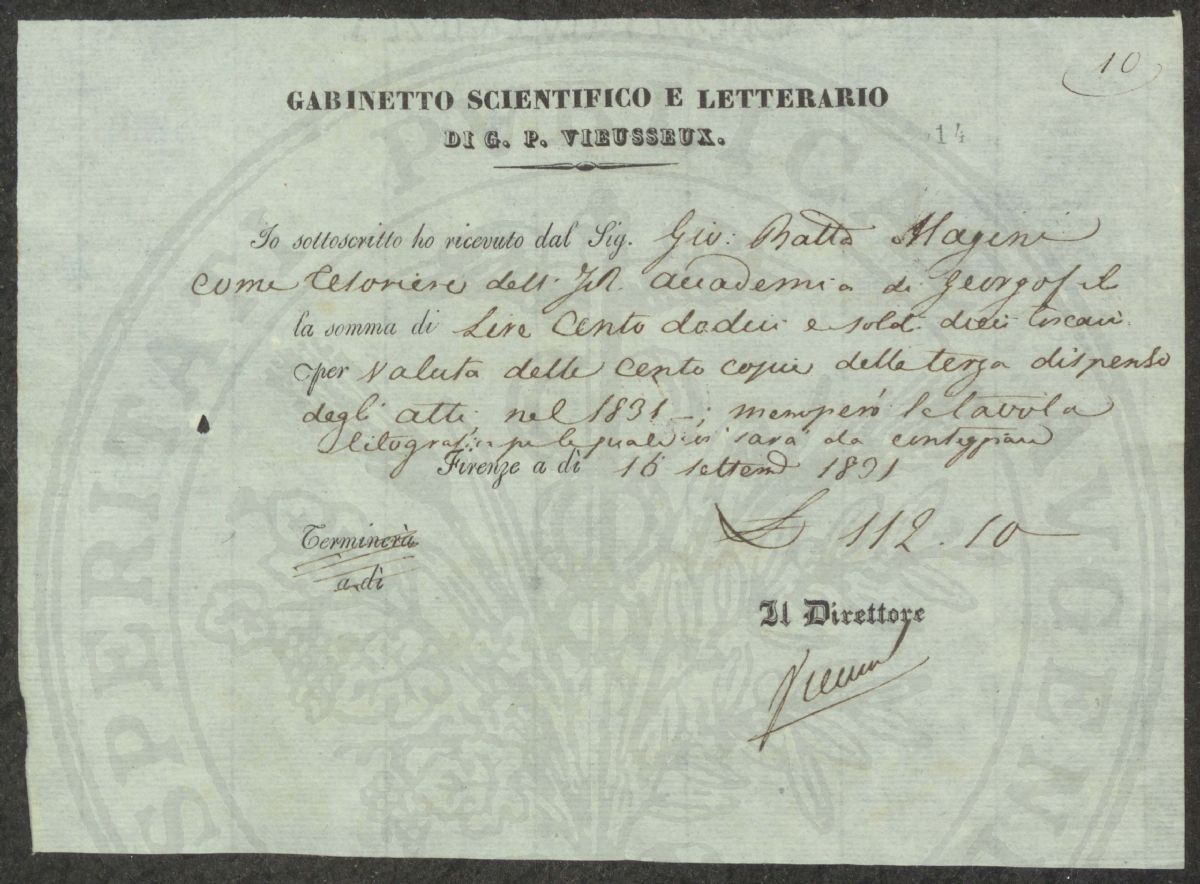 10
GABINETTO SCIENTIFICO E LETTERARIO
DI G. P. VIEUSSEUX.
14
Io sottoscritto ho ricevuto dal Sig. Gio: Batta Magini
come Tesoriere dell' I R. Accademia de Georgofili
la somma di Lire Cento dodici e soldi dieci toscani
per valuta delle Cento copie della terza dispensa
degli atti nel 1831 -; meno però le tavola
litografi per le quale si sarà da conteggiare
Firenze a dì 16 settemb 1831
£ 112.10
Terminerà
a dì
Il Direttore
Vieusseux
PROSPERITATI PUBLICAE AUGENDAE